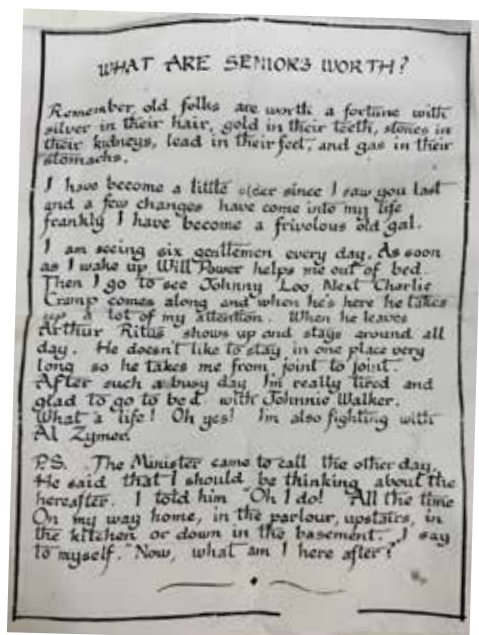 WHAT ARE SENIORS WORTH?
Remember, old folks are worth a fortune with
silver in their hair, gold in their teeth, stones in
their kidneys, lead in their feet, and gas in their
stomachs.
I have become a little older since I saw you last
and a few changes have come into my life
frankly I have become a frivolous old gal.
I am seeing six gentlemen every day. As soon
as I wake up Will Power helps me out of bed.
Then I go to see Johnny Loo. Next Charlie
Cramp comes along and when he's here he takes
up a lot of my attention. When he leaves
Arthur Ritus shows up and stays around all
day. He doesn't like to stay in one place very
long so he takes me from joint to joint.
After such a busy day I'm really tired and
glad to go to bed with Johnnie Walker.
What a life! Oh yes! I'm also fighting with
Al Zymer.
P.S. The Minister came to call the other day.
He said that I should be thinking about the
hereafter. I told him "Oh I do! All the time
On my way home, in the parlour, upstairs, in
the kitchen or down in the basement. I say
to myself. "Now, what am I here after?"